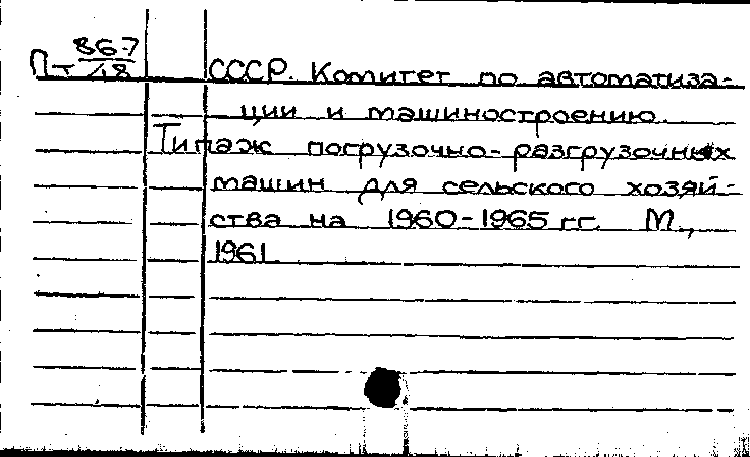 Пт 867/18
СССР. Комитет по автоматиза-
ции и машиностроению.
Типаж погрузочно-разгрузочных
машин для сельского хозяй-
ства на 1960-1965 гг. М.,
1961